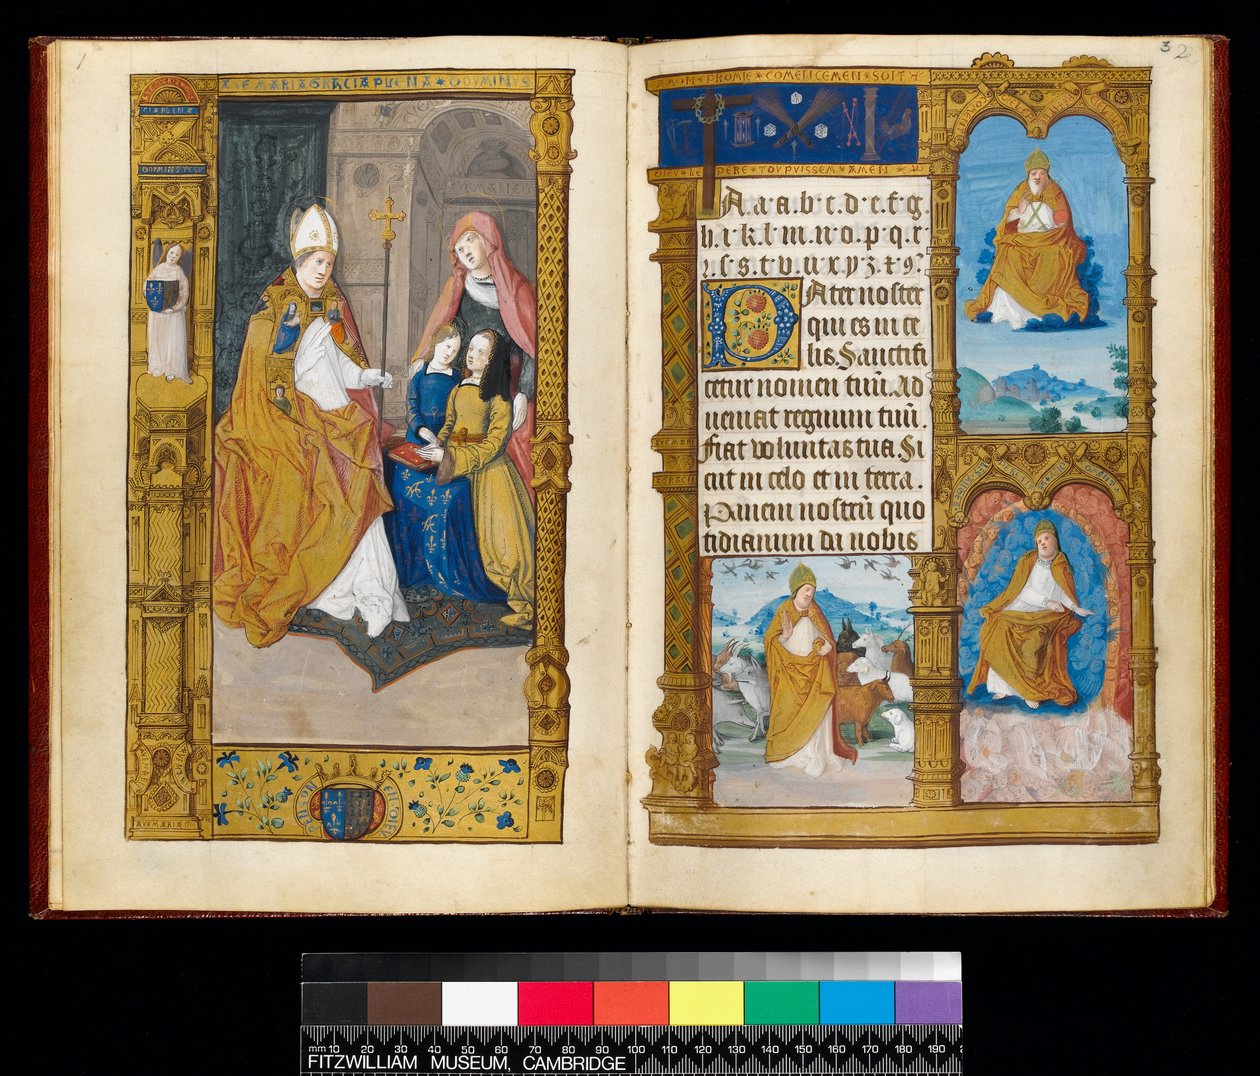 1
AVE MARIA GRACIA PLENA DOMINVS
CIA PLENA
DOMINVS TECV
AVE MARIA GR
3 2
MON PROMIE COMENCEMEN SOIT
DIEV LE PERE TOVPVISSEM AMEN
A.a.a.b.c.d.e.f.g.
h.i.k.l.m.n.o.p.q.r.
ꝛ.ſ.s.t.v.u.x.y.z.⁊.ꝯ.
PAter noster
qui es in ce
lis Sanctifi
cetur nomen tuū. Ad
ueniat regnum tuū.
Fiat voluntas tua Si
cut in celo et in terra.
Panem nostrū quo
tidianum da nobis
mm 10 20 30 40 50 60 70 80 90 100 110 120 130 140 150 160 170 180 190
FITZWILLIAM MUSEUM, CAMBRIDGE